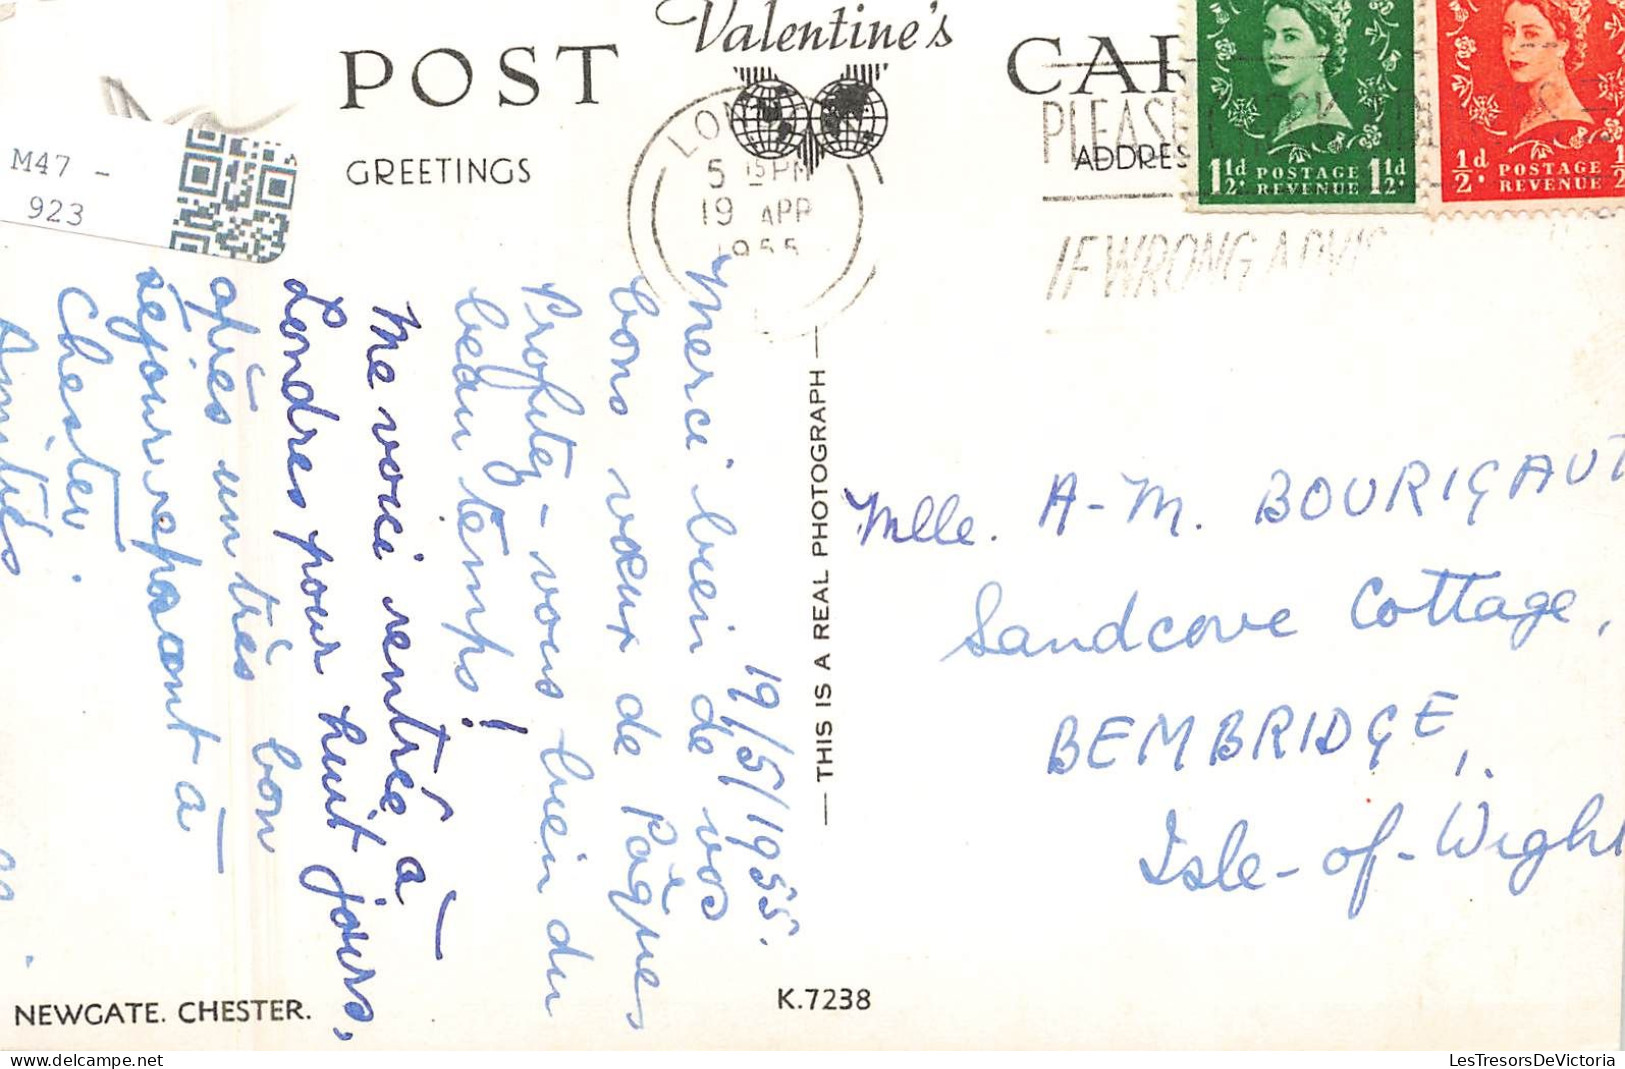 Valentine's
POST CAR
GREETINGS
ADDRES
M47 -
923
LON
5 15 PM
19 APR
1955
PLEASE
IF WRONG ADVIS
1½d. POSTAGE REVENUE 1½d.
½d. POSTAGE REVENUE ½
19/5/1955.
Merci bien de vos
bons vœux de Pâques
Profitez-vous bien du
beau temps!
Me voici rentré à
Londres pour huit jours,
après un très bon
séjour reposant à
Chester.
Amitiés
THIS IS A REAL PHOTOGRAPH
Mlle. A-M. BOURIGAUT
Sandcove Cottage,
BEMBRIDGE,
Isle-of-Wight
NEWGATE. CHESTER.
K.7238
LesTresorsDeVictoria